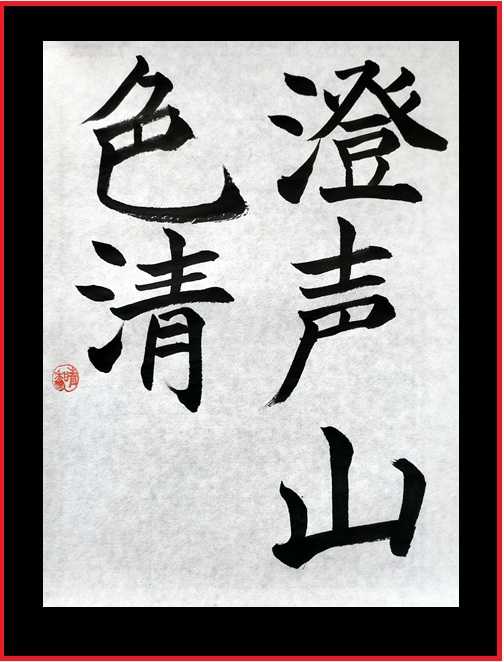 澄声山
色清